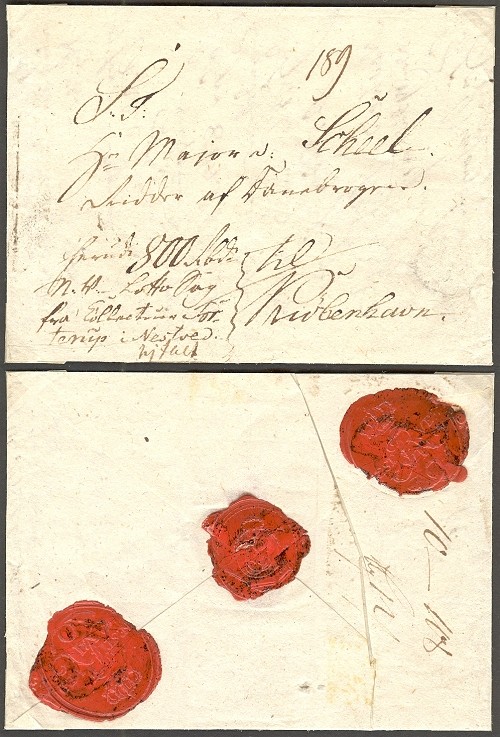 189
S. T.
Hr Major v: Scheel.
Ridder af Danebrogen.
herudi 800 Rbd:
N. V. Lotto Sag
fra Collecteur
terup i Nestved.
til
Kiøbenhavn.
10 —